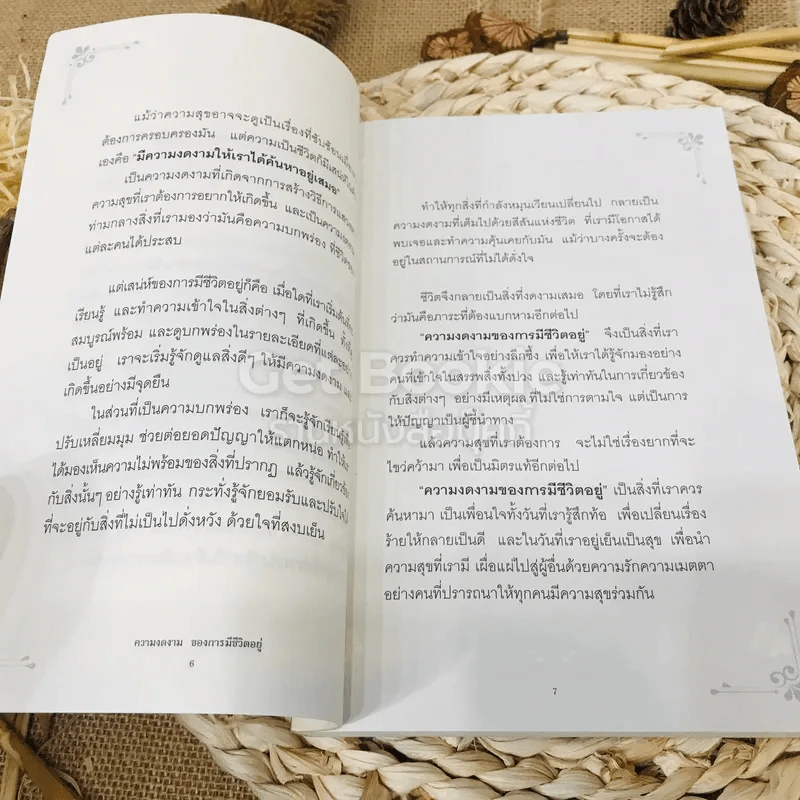 แม้ว่าความสุขอาจจะดูเป็นเรื่องที่ซับซ้อน
ต้องการครอบครองมัน แต่ความเป็นชีวิตก็มี
เองคือ “มีความงดงามให้เราได้ค้นหาอยู่เสมอ”
เป็นความงดงามที่เกิดจากการสร้างวิธีการ
ความสุขที่เราต้องการอยากให้เกิดขึ้น และเป็นความ
ท่ามกลางสิ่งที่เรามองว่ามันคือความบกพร่อง ที่ชีวิต
แต่ละคนได้ประสบ
แต่เสน่ห์ของการมีชีวิตอยู่ก็คือ เมื่อใดที่เราเริ่มต้น
เรียนรู้ และทำความเข้าใจในสิ่งต่างๆ ที่เกิดขึ้น
สมบูรณ์พร้อม และดูบกพร่องในรายละเอียดที่แต่ละ
เป็นอยู่ เราจะเริ่มรู้จักดูแลสิ่งดีๆ ให้มีความงดงาม
เกิดขึ้นอย่างมีจุดยืน
ในส่วนที่เป็นความบกพร่อง เราก็จะรู้จักเรียนรู้
ปรับเหลี่ยมมุม ช่วยต่อยอดปัญญาให้แตกหน่อ ทำให้
ได้มองเห็นความไม่พร้อมของสิ่งที่ปรากฏ แล้วรู้จักเกี่ยวข้อง
กับสิ่งนั้นๆ อย่างรู้เท่าทัน กระทั่งรู้จักยอมรับและปรับใจ
ที่จะอยู่กับสิ่งที่ไม่เป็นไปดั่งหวัง ด้วยใจที่สงบเย็น
ความงดงาม ของการมีชีวิตอยู่
6
ทำให้ทุกสิ่งที่กำลังหมุนเวียนเปลี่ยนไป กลายเป็น
ความงดงามที่เต็มไปด้วยสีสันแห่งชีวิต ที่เรามีโอกาสได้
พบเจอและทำความคุ้นเคยกับมัน แม้ว่าบางครั้งจะต้อง
อยู่ในสถานการณ์ที่ไม่ได้ตั้งใจ
ชีวิตจึงกลายเป็นสิ่งที่งดงามเสมอ โดยที่เราไม่รู้สึก
ว่ามันคือภาระที่ต้องแบกหามอีกต่อไป
“ความงดงามของการมีชีวิตอยู่” จึงเป็นสิ่งที่เรา
ควรทำความเข้าใจอย่างลึกซึ้ง เพื่อให้เราได้รู้จักมองอย่าง
คนที่เข้าใจในสรรพสิ่งทั้งปวง และรู้เท่าทันในการเกี่ยวข้อง
กับสิ่งต่างๆ อย่างมีเหตุผล ที่ไม่ใช่การตามใจ แต่เป็นการ
ให้ปัญญาเป็นผู้ชี้นำทาง
แล้วความสุขที่เราต้องการ จะไม่ใช่เรื่องยากที่จะ
ไขว่คว้ามา เพื่อเป็นมิตรแท้อีกต่อไป
“ความงดงามของการมีชีวิตอยู่” เป็นสิ่งที่เราควร
ค้นหามา เป็นเพื่อนใจทั้งวันที่เรารู้สึกท้อ เพื่อเปลี่ยนเรื่อง
ร้ายให้กลายเป็นดี และในวันที่เราอยู่เย็นเป็นสุข เพื่อนำ
ความสุขที่เรามี เผื่อแผ่ไปสู่ผู้อื่นด้วยความรักความเมตตา
อย่างคนที่ปรารถนาให้ทุกคนมีความสุขร่วมกัน
7